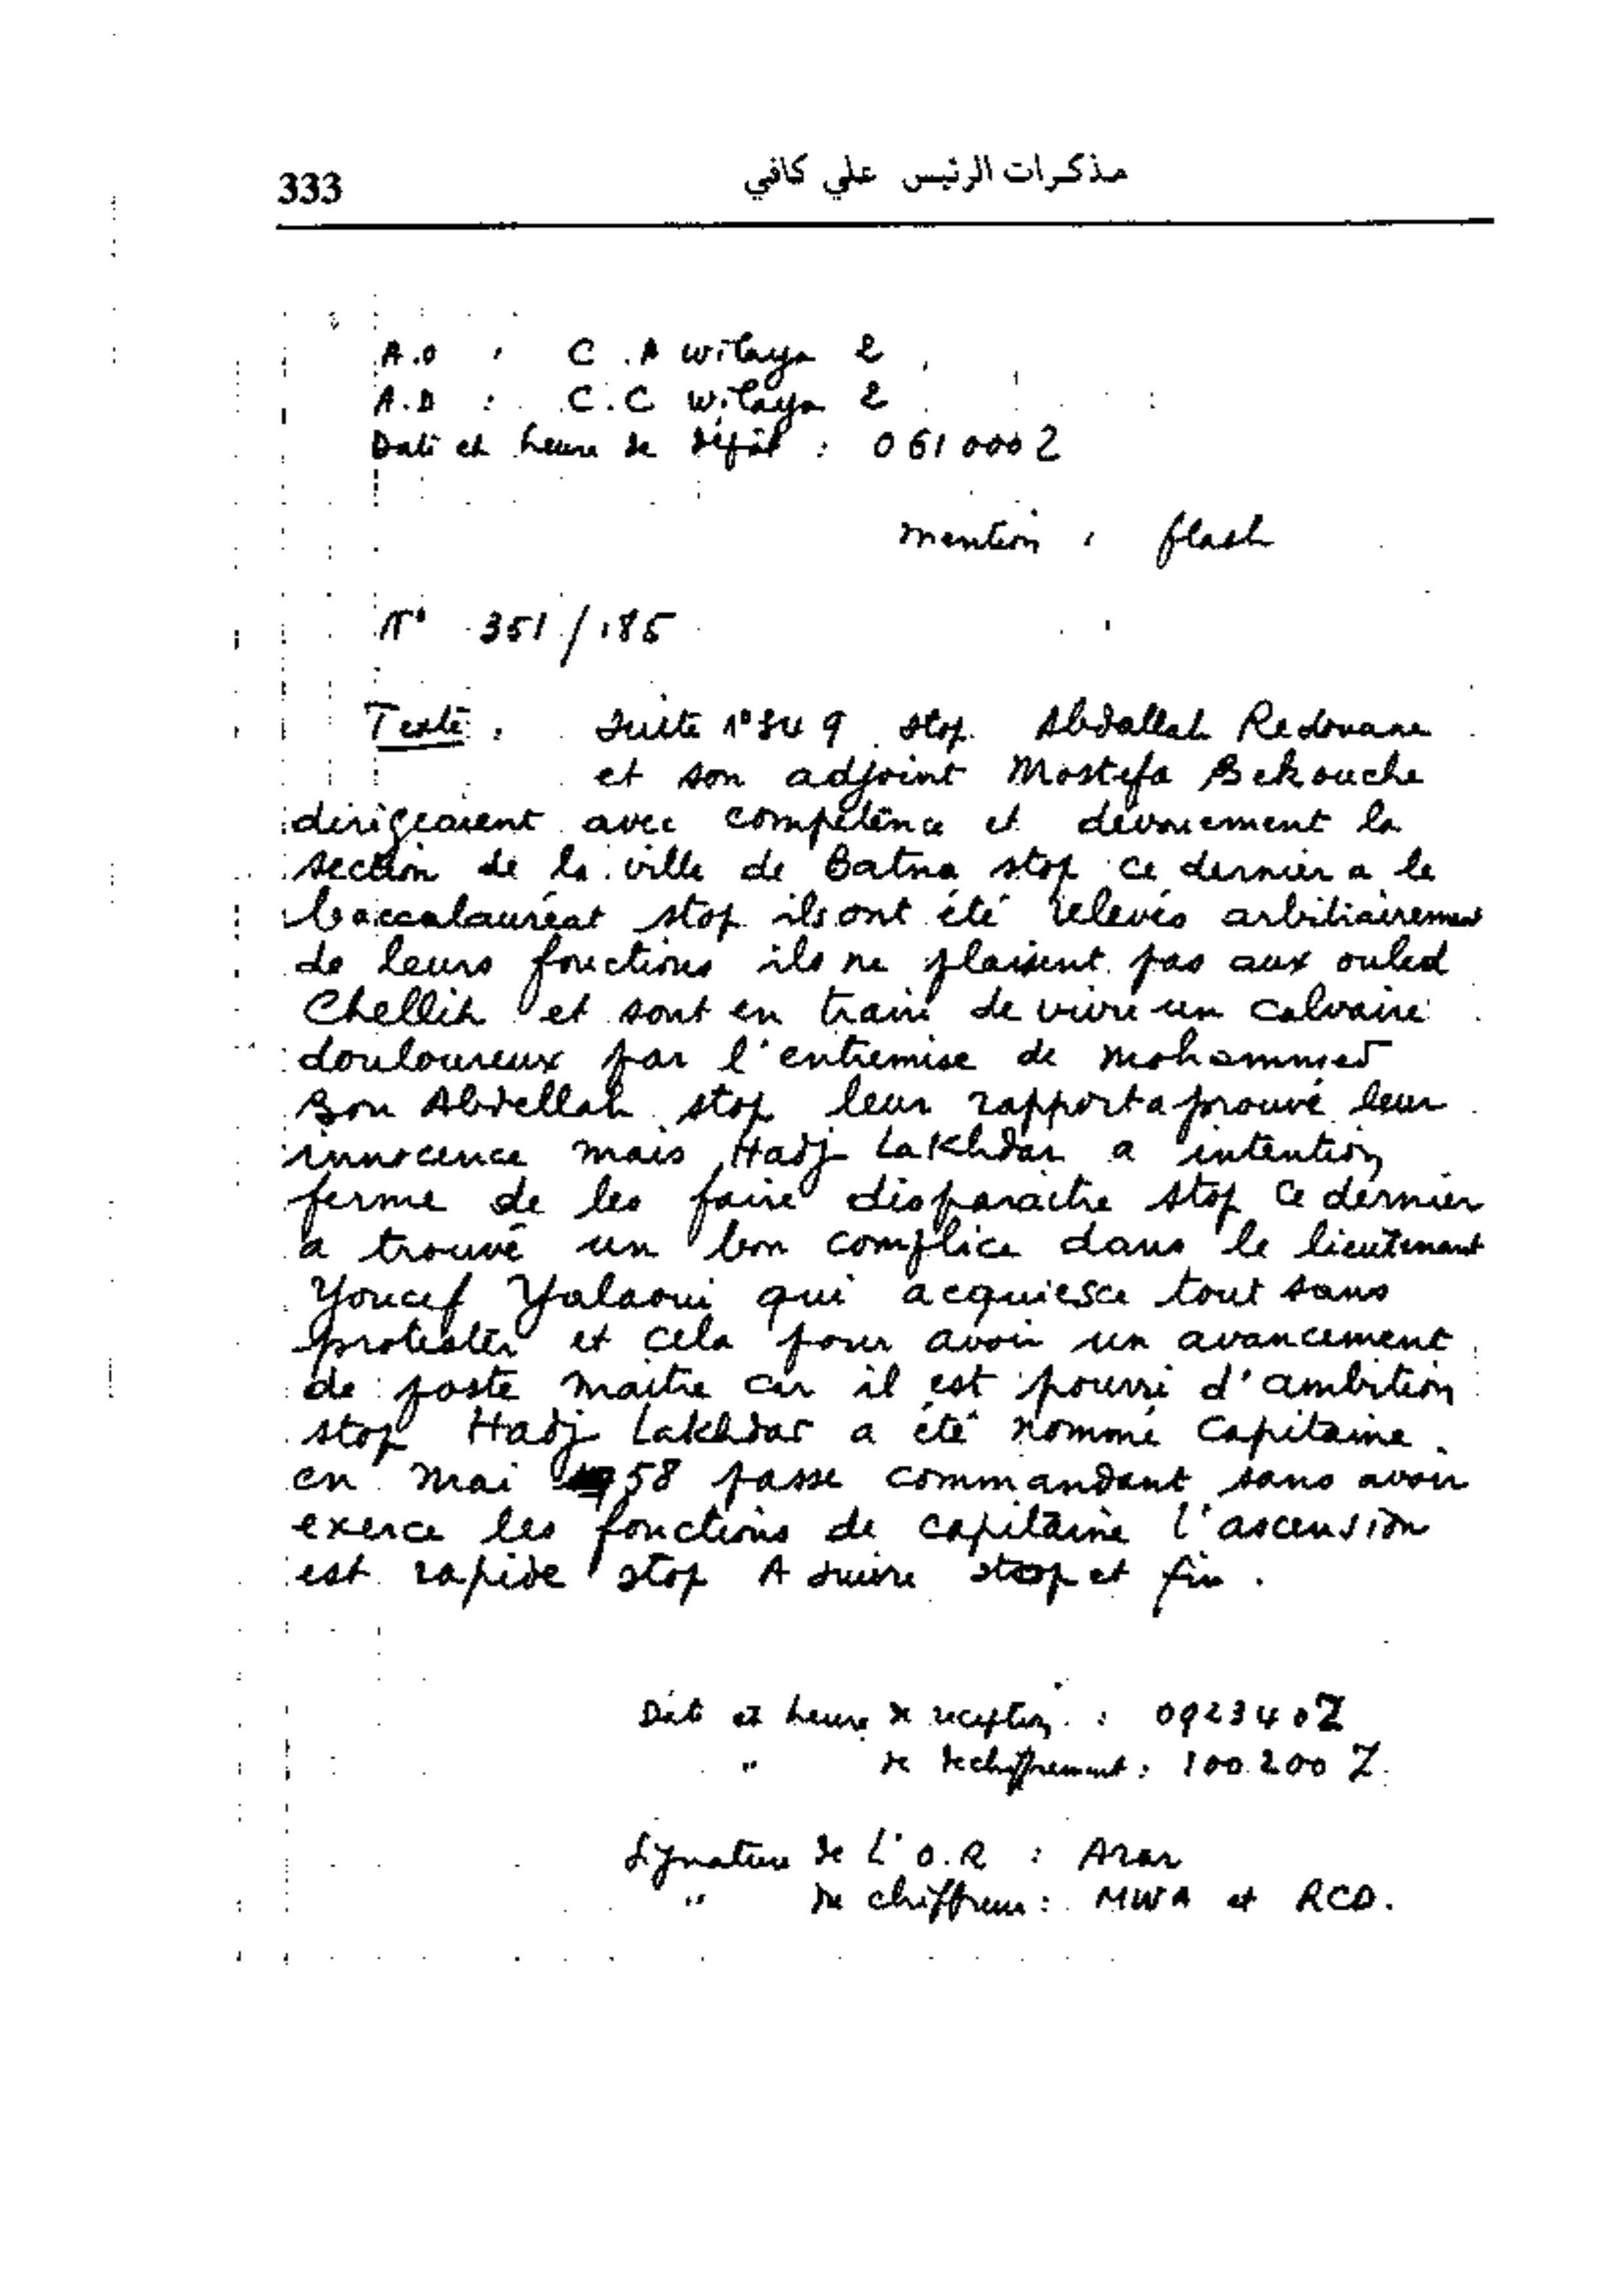 333
مذكرات الرئيس علي كافي
A.O : C.A wilaya 2
A.D : C.C wilaya 2
Date et heure de dépôt : 061000Z
mention : flash
N° 351/185
Texte : suite n° 349 stop Abdallah Redouane
et son adjoint Mostefa Bekouche
dirigeaient avec compétence et dévouement la
section de la ville de Batna stop ce dernier a le
baccalauréat stop ils ont été relevés arbitrairement
de leurs fonctions ils ne plaisent pas aux ouled
Chellih et sont en train de vivre un calvaire
douloureux par l'entremise de Mohammed
Bou Abdellah stop leur rapport a prouvé leur
innocence mais Hadj Lakhdar a intention
ferme de les faire disparaitre stop Ce dernier
a trouvé un bon complice dans le lieutenant
Youcef Yalaoui qui acquiesce tout sans
protester et cela pour avoir un avancement
de poste maitre car il est pourri d'ambition
stop Hadj Lakhdar a été nommé Capitaine
en mai 1958 passe commandant sans avoir
exerce les fonctions de capitaine l'ascension
est rapide stop A suivre stop et fin .
Date et heure de reception : 092340Z
" de dechiffrement : 100200 Z
Signature de L'O.R : Azar
" de chiffreur : MWA et RCD.